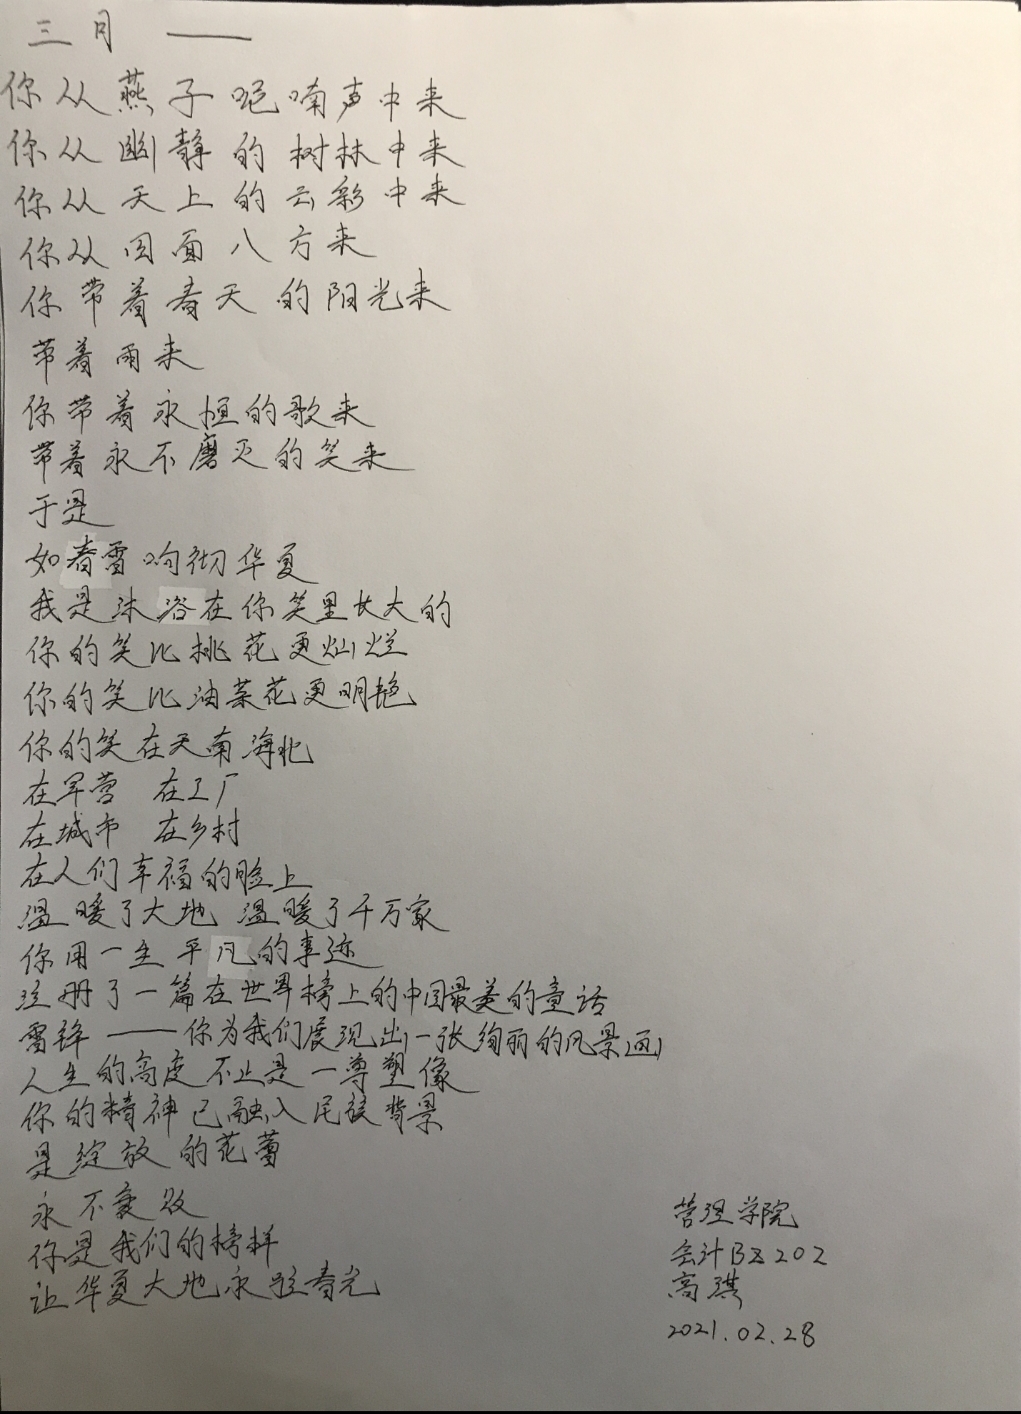 三月 ——
你从燕子呢喃声中来
你从幽静的树林中来
你从天上的云彩中来
你从四面八方来
你带着春天的阳光来
带着雨来
你带着永恒的歌来
带着永不磨灭的笑来
于是
如春雷响彻华夏
我是沐浴在你笑里长大的
你的笑比桃花更灿烂
你的笑比油菜花更明艳
你的笑在天南海北
在军营 在工厂
在城市 在乡村
在人们幸福的脸上
温暖了大地 温暖了千万家
你用一生平凡的事迹
注册了一篇在世界榜上的中国最美的童话
雷锋——你为我们展现出一张绚丽的风景画
人生的高度不止是一尊塑像
你的精神已融入民族背景
是绽放的花蕾
永不衰败
你是我们的榜样
让华夏大地永驻春光
管理学院
会计BZ202
高琪
2021.02.28